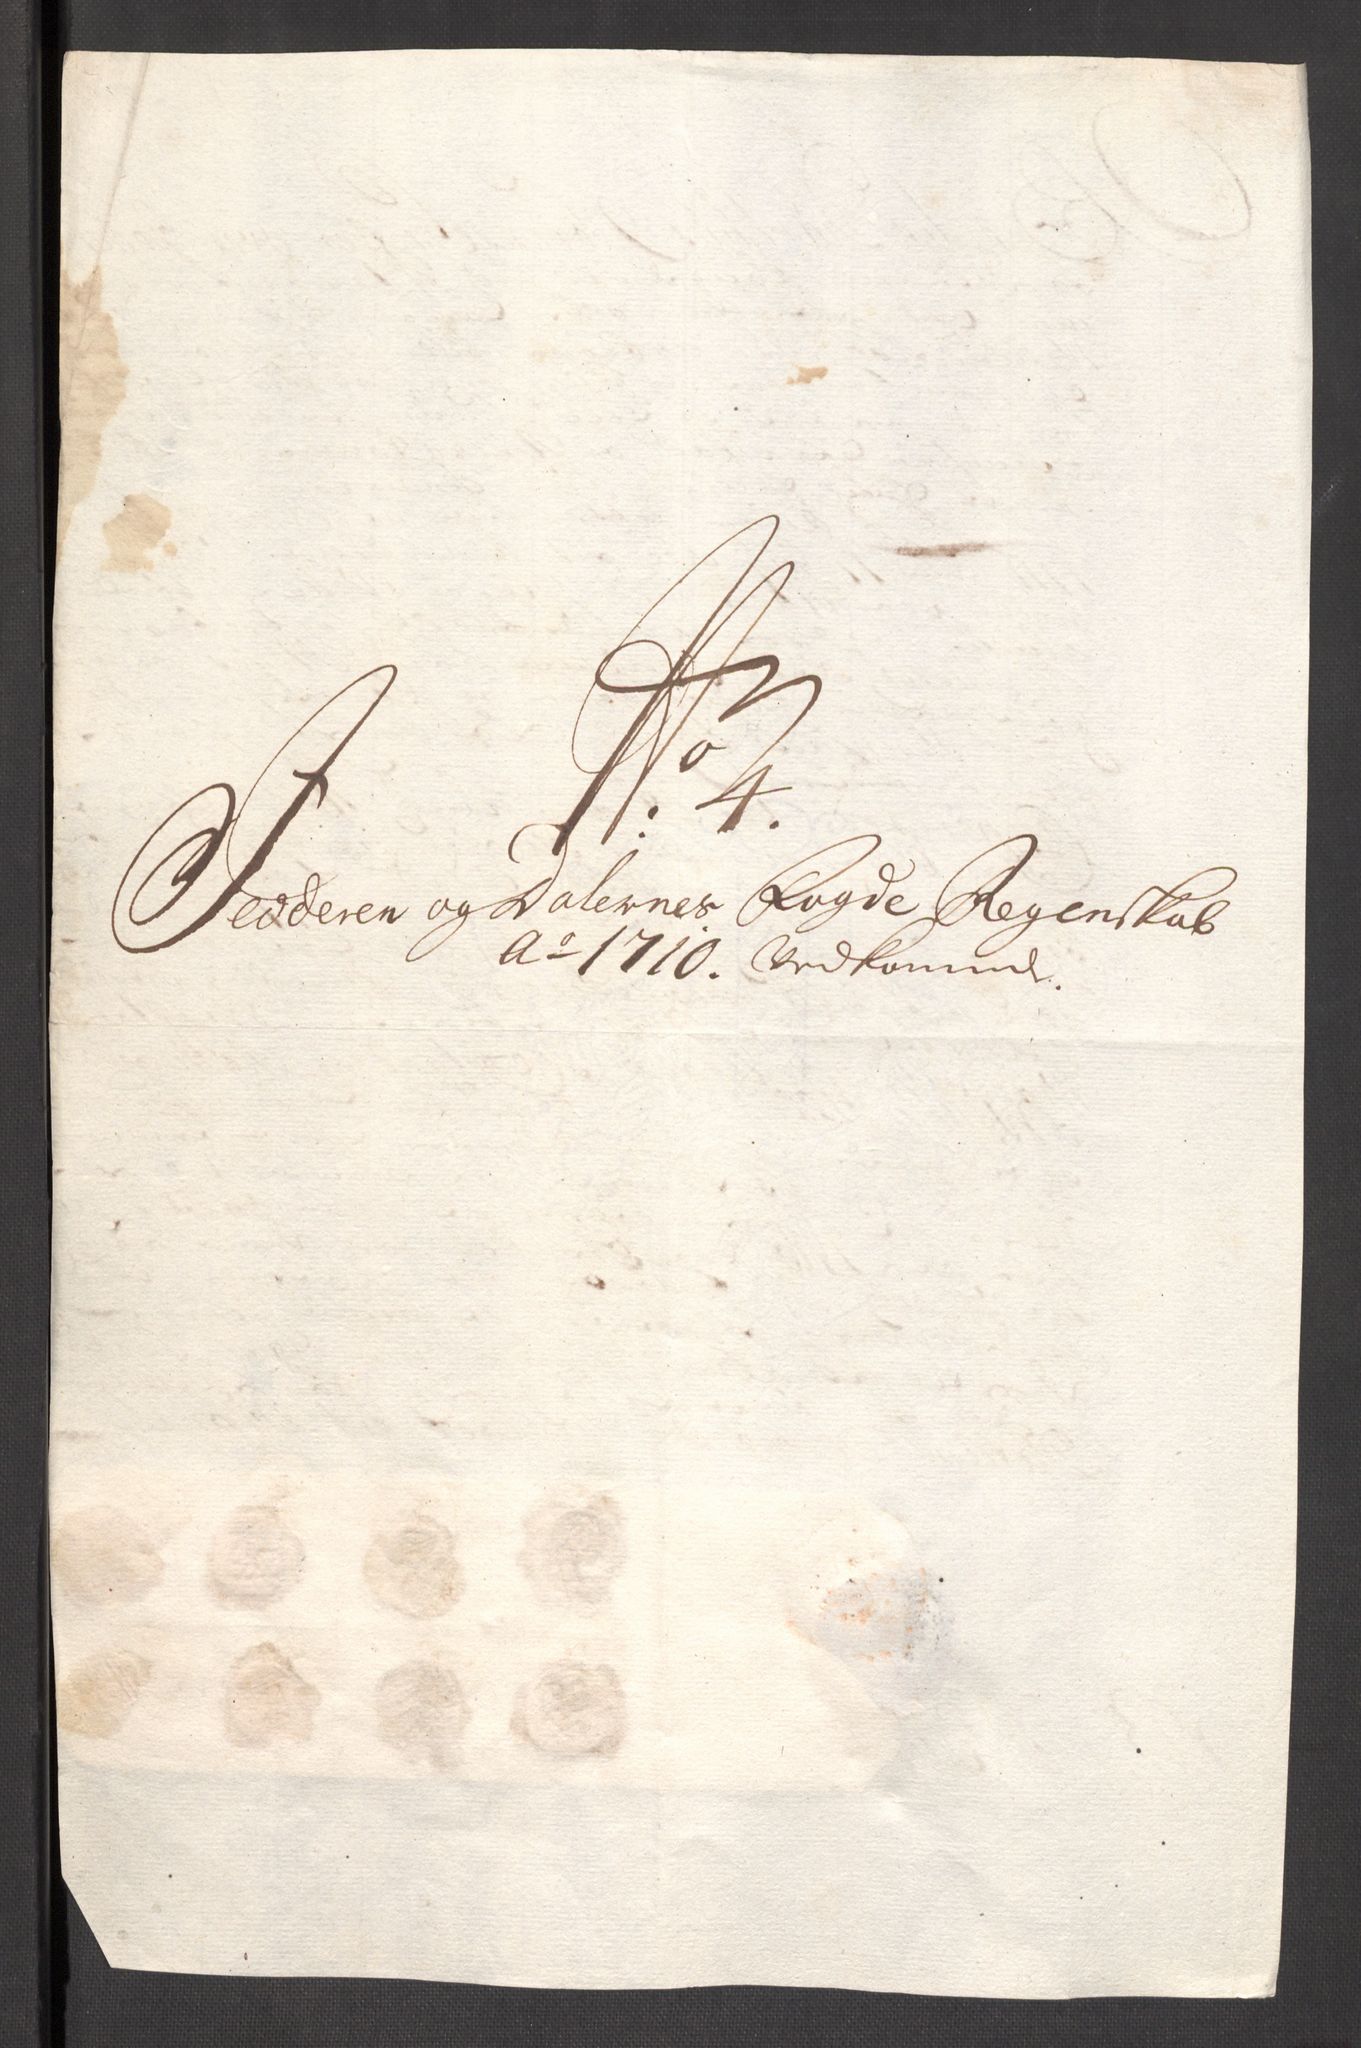 No: 4.
Jedderen og Dalernes Fogde Regenskab
Ao 1710. Vedkommde.